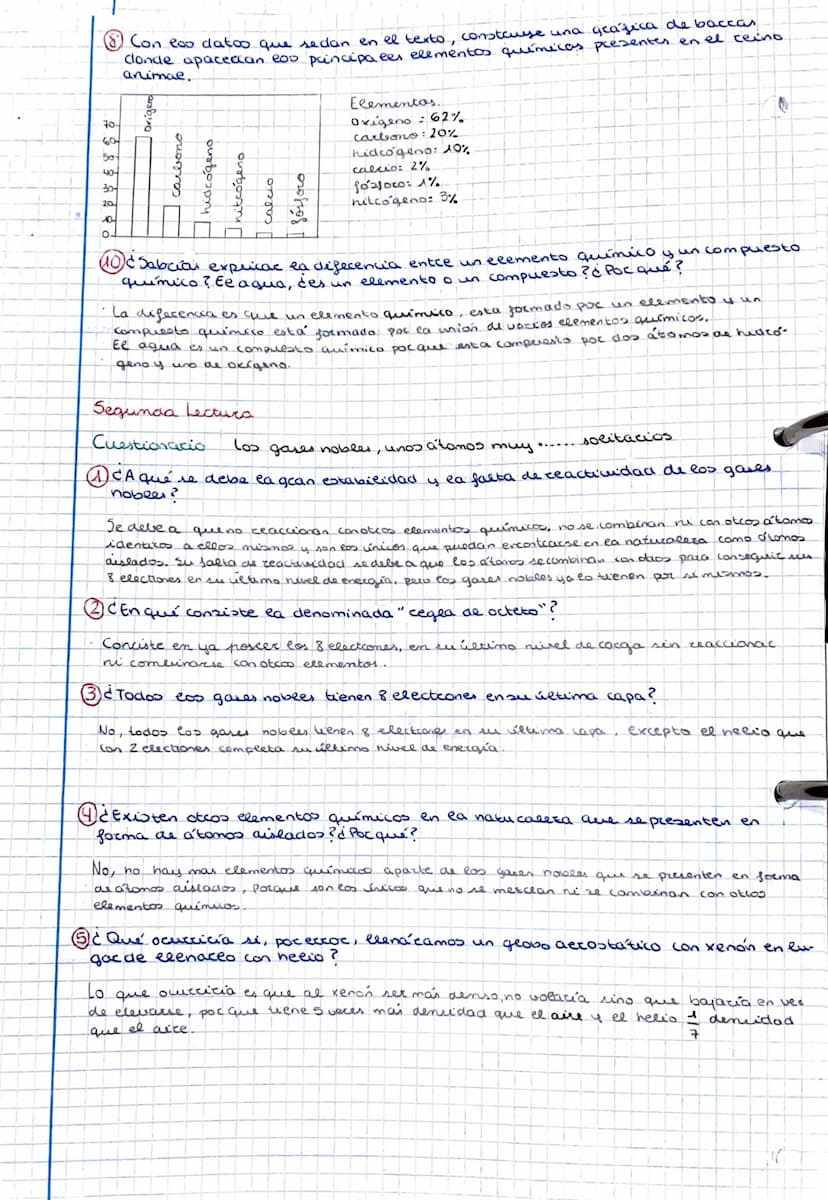 8 Con los datos que se dan en el texto, construye una gráfica de barras
donde aparezcan los principales elementos químicos presentes en el reino
animal.
70
60
50
40
30
20
10
0
oxígeno
carbono
hidrógeno
nitrógeno
calcio
fósforo
Elementos.
oxígeno : 62%
carbono : 20%
hidrógeno: 10%
calcio: 2%
fósforo: 1%
nitrógeno: 3%
10 ¿Sabrías explicar la diferencia entre un elemento químico y un compuesto
químico? El agua, ¿es un elemento o un compuesto? ¿Por qué?
· La diferencia es que un elemento químico, esta formado por un elemento y un
compuesto químico está formado por la unión de varios elementos químicos.
El agua es un compuesto químico porque esta compuesto por dos átomos de hidró-
geno y uno de oxígeno.
Segunda Lectura
Cuestionario Los gases nobles, unos átomos muy ...... solitarios
1 ¿A qué se debe la gran estabilidad y la falta de reactividad de los gases
nobles?
Se debe a que no reaccionan con otros elementos químicos, no se combinan ni con otros átomos
identicos a ellos mismos y son los únicos que puedan encontrarse en la naturaleza como átomos
aislados. Su falta de reactividad se debe a que los átomos se combinan con otros para conseguir sus
8 electrones en su último nivel de energía, pero los gases nobles ya lo tienen por si mismos.
2 ¿En qué consiste la denominada "regla de octeto"?
· Consiste en ya poseer los 8 electrones, en su último nivel de carga sin reaccionar
ni combinarse con otros elementos.
3 ¿Todos los gases nobles tienen 8 electrones en su última capa?
No, todos los gases nobles tienen 8 electrones en su última capa, excepto el helio que
con 2 electrones completa su último nivel de energía.
4 ¿Existen otros elementos químicos en la naturaleza que se presenten en
forma de átomos aislados? ¿Por qué?
No, no hay mas elementos químicos aparte de los gases nobles que se presenten en forma
de átomos aislados, porque son los únicos que no se mezclan ni se combinan con otros
elementos químicos.
5 ¿Qué ocurriría si, por error, llenáramos un globo aerostático con xenón en lu-
gar de llenarlo con helio?
Lo que ocurriría es que al xenón ser más denso, no volaría sino que bajaría en vez
de elevarse, porque tiene 5 veces más densidad que el aire y el helio 1/7 densidad
que el aire.